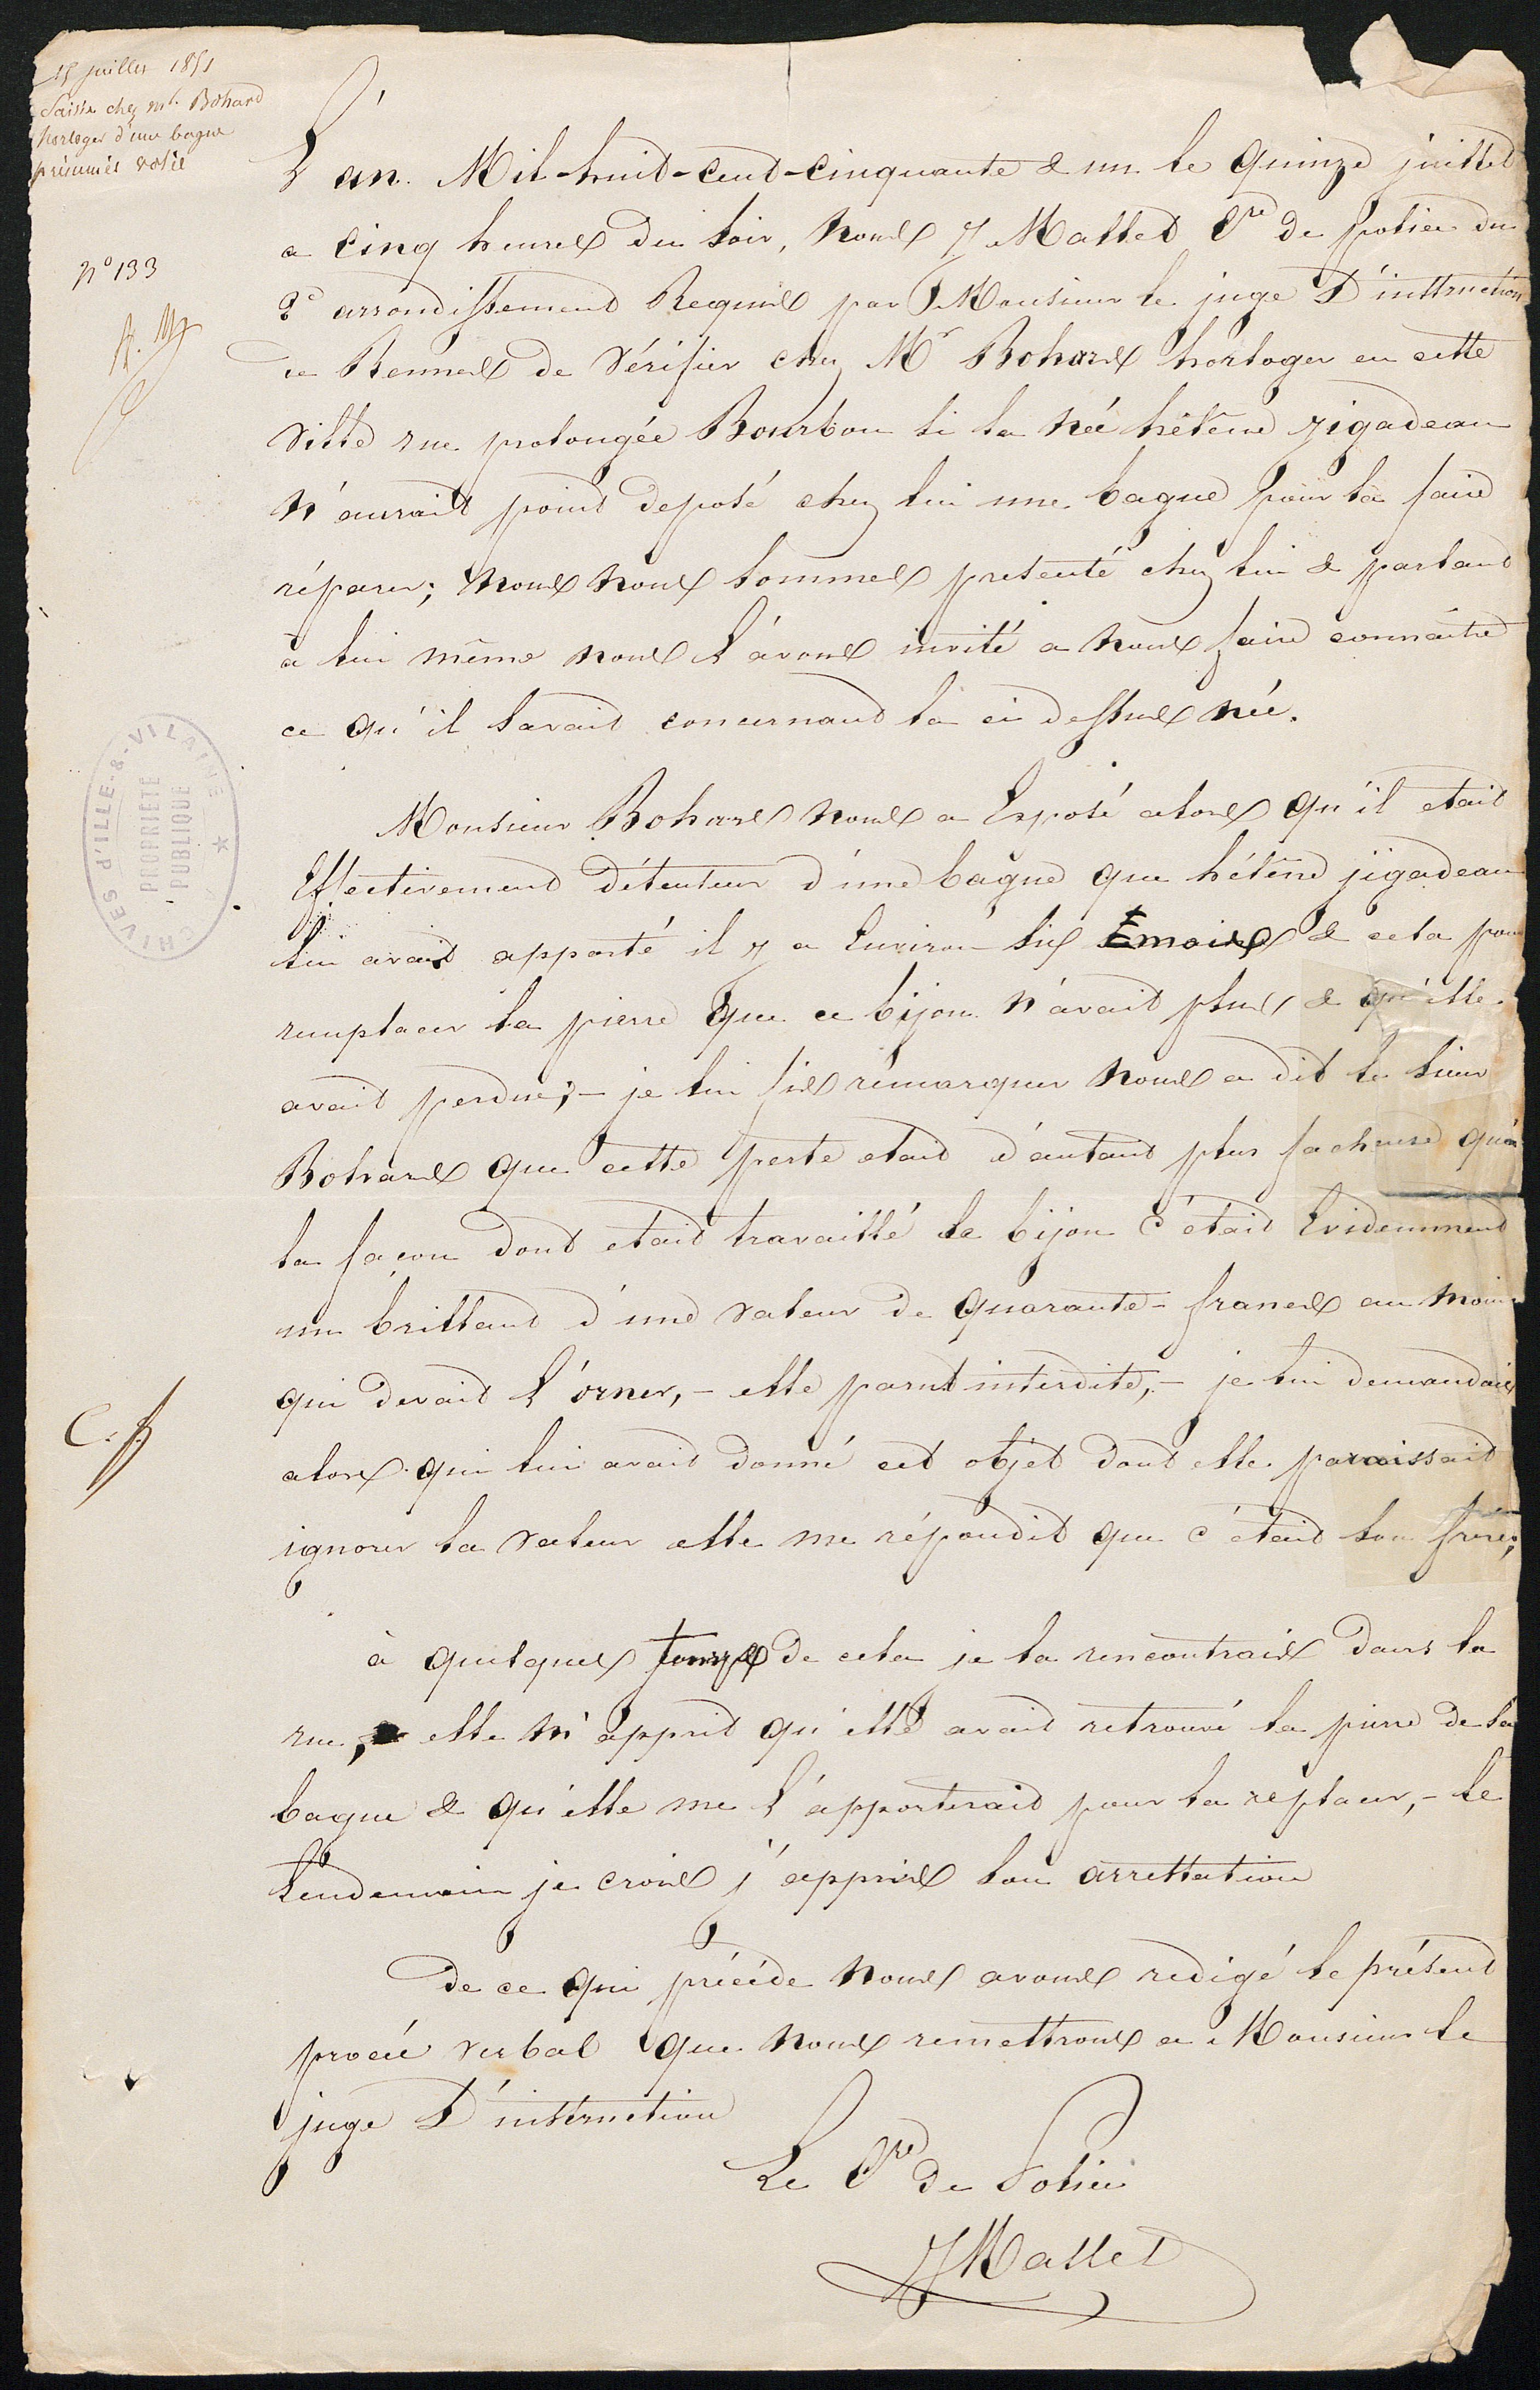 15 juillet 1851
Saisie chez mr. Bohard
horloger d'une bague
présumée volée
N° 133
C. f
ARCHIVES d'ILLE-&-VILAINE
PROPRIÉTÉ
PUBLIQUE
L'an. Mil-huit-cent-cinquante & un le quinze juillet
a cinq heures du soir, Nous J Mallet Cre de police du
2e arrondissement Requis par Monsieur le juge D'instruction
de Rennes de Vérifier chez Mr Bohard horloger en cette
ville rue prolongée Bourbon si la née hélène jigadeau
N'aurait point deposé chez lui une bague pour la faire
réparer; Nous nous sommes presenté chez lui & parlant
à lui même nous l'avons invité a nous faire connaître
ce qu'il savait concernant la ci dessus née.
Monsieur Bohard nous a Exposé alors qu'il etait
Effectivement détenteur d'une bague que hélène jigadeau
lui avait apporté il y a Environ six mois & cela pour
remplacer la pierre que ce bijou N'avait plus & qu'elle
avait perdue; - je lui fis rémarquer nous a dit le sieur
Bohard que cette perte etait d'autant plus facheuse qu'à
la façon dont etait travaillé le bijou c'était Evidemment
un brillant d'une valeur de quarante-francs au moins
qui devait l'orner, - elle parut interdite, - je lui demandais
alors qui lui avait donné cet objet dont elle paraissait
ignorer la valeur elle me répondit que c'était son frère;
à quelques temps de cela je la rencontrais dans la
rue, elle m'apprit qu'elle avait retrouvé la pierre de sa
bague & qu'elle me l'apporterait pour la replacer, - le
lendemain je crois j'appris son arrettation
De ce qui précéde nous avons redigé le présent
procé verbal que nous remettrons a Monsieur le
juge D'instruction
Le Cre de Police
J Mallet